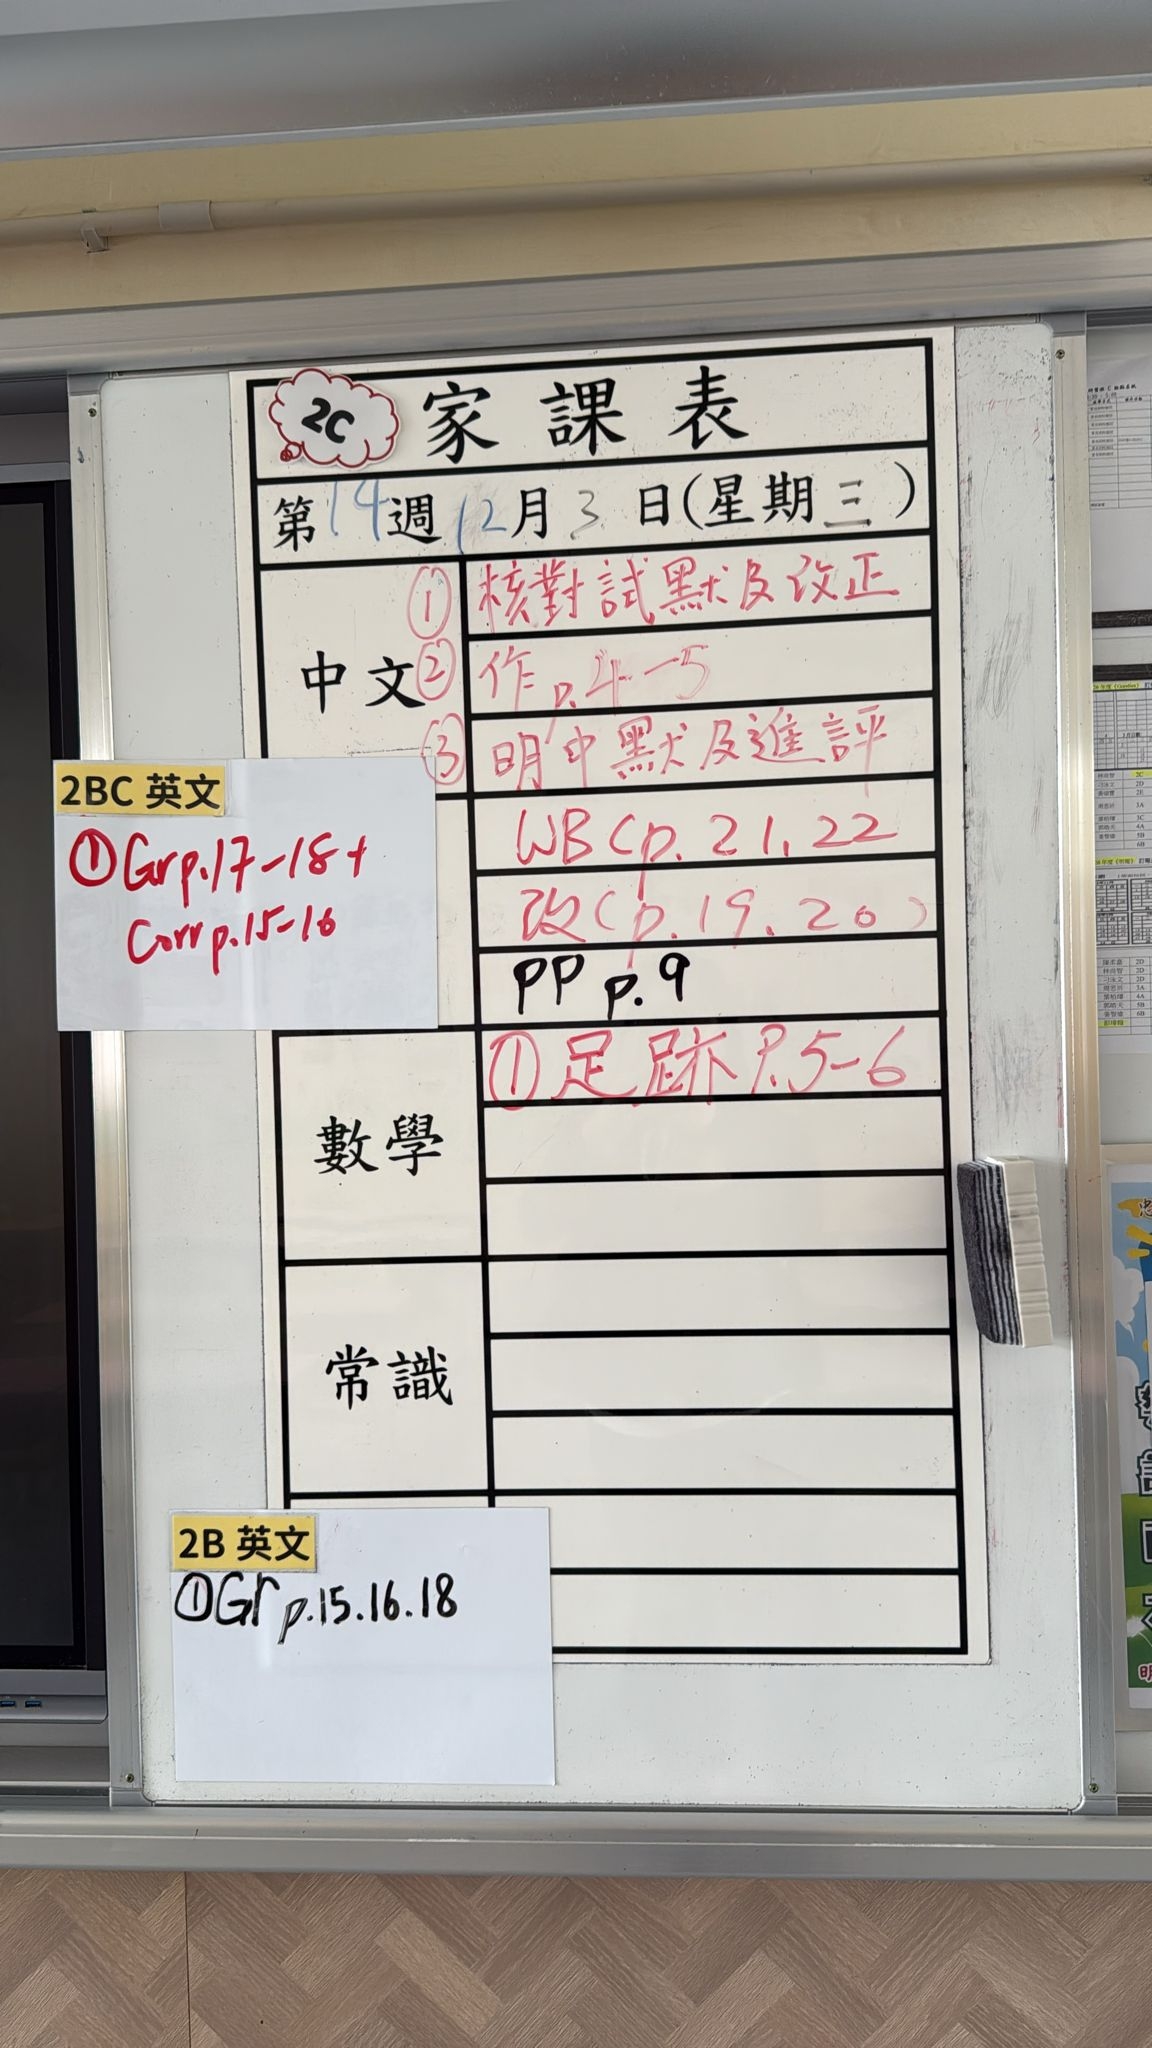 2C 家課表
第14週12月3日(星期三)
中文
① 核對試默及改正
② 作p.4-5
③ 明中默及進評
2BC 英文
①Gr p.17-18+
Corr p.15-16
WB(p.21,22
改(p.19,20)
PP p.9
數學
①足跡P.5-6
常識
2B 英文
①Gr p.15.16.18